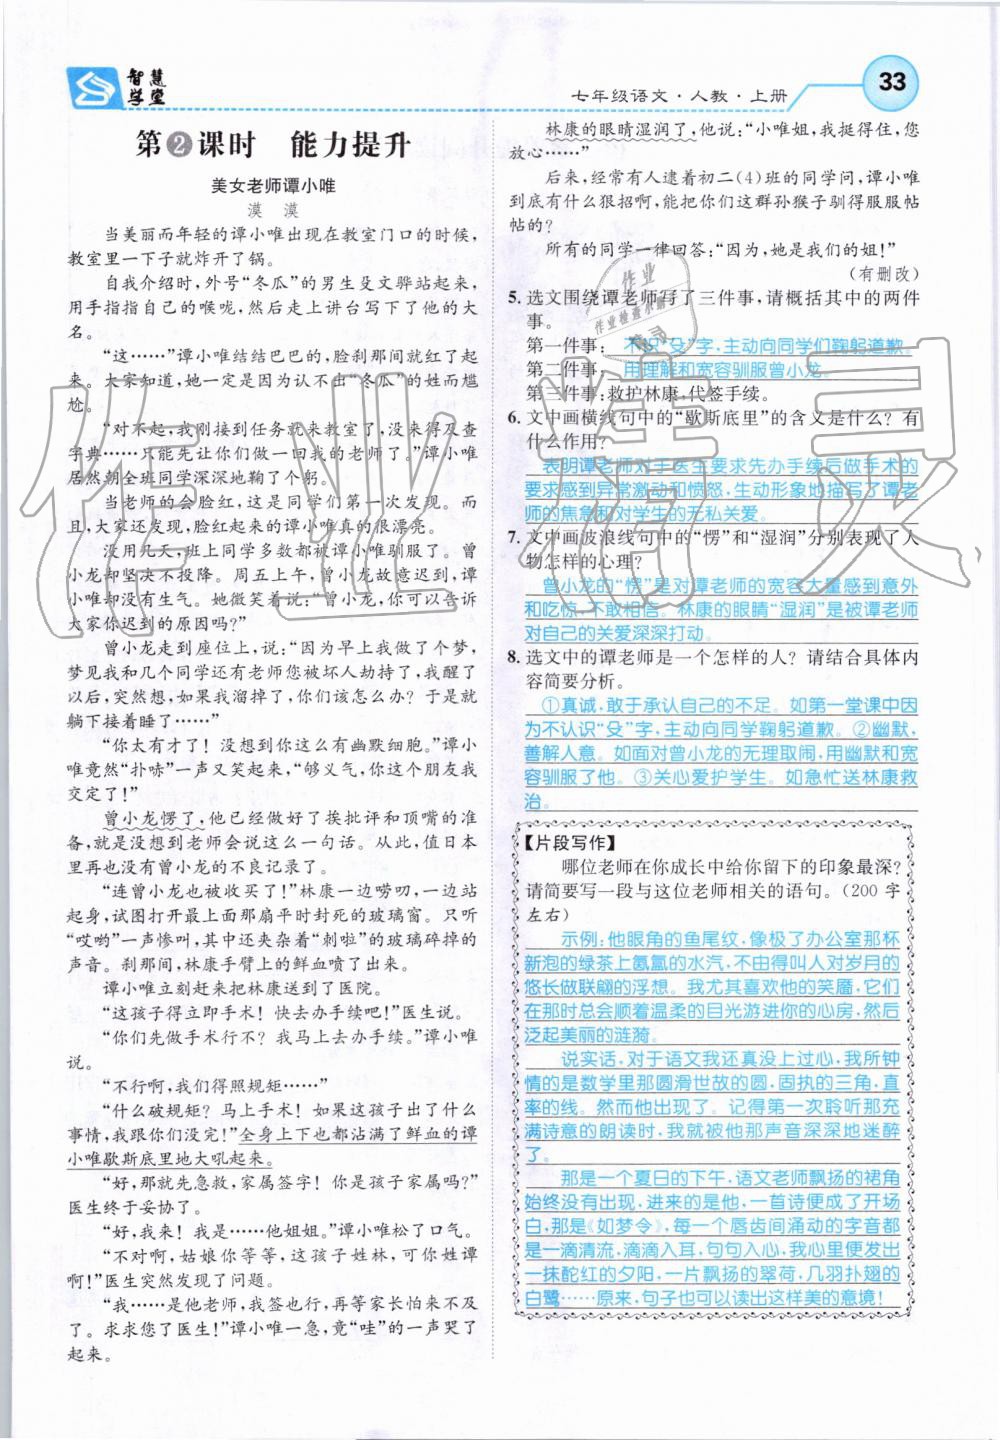 智慧
学堂
七年级语文·人教·上册
33
第2课时 能力提升
美女老师谭小唯
漠 漠
当美丽而年轻的谭小唯出现在教室门口的时候，
教室里一下子就炸开了锅。
自我介绍时，外号“冬瓜”的男生殳文骅站起来，
用手指指自己的喉咙，然后走上讲台写下了他的大
名。
“这……”谭小唯结结巴巴的，脸刹那间就红了起
来。大家知道，她一定是因为认不出“冬瓜”的姓而尴
尬。
“对不起，我刚接到任务就来教室了，没来得及查
字典……只能先让你们做一回我的老师了。”谭小唯
居然朝全班同学深深地鞠了个躬。
当老师的会脸红，这是同学们第一次发现。而
且，大家还发现，脸红起来的谭小唯真的很漂亮。
没用几天，班上同学多数都被谭小唯驯服了。曾
小龙却坚决不投降。周五上午，曾小龙故意迟到，谭
小唯却没有生气。她微笑着说：“曾小龙，你可以告诉
大家你迟到的原因吗？”
曾小龙走到座位上，说：“因为早上我做了个梦，
梦见我和几个同学还有老师您被坏人劫持了，我醒了
以后，突然想，如果我溜掉了，你们该怎么办？于是就
躺下接着睡了……”
“你太有才了！没想到你这么有幽默细胞。”谭小
唯竟然“扑哧”一声又笑起来，“够义气，你这个朋友我
交定了！”
曾小龙愣了，他已经做好了挨批评和顶嘴的准
备，就是没想到老师会说这么一句话。从此，值日本
里再也没有曾小龙的不良记录了。
“连曾小龙也被驯服啦！”林康一边唠叨，一边站
起身，试图打开最上面那扇平时封死的玻璃窗。只听
“哎哟”一声惨叫，其中还夹杂着“刺啦”的玻璃碎掉的
声音。刹那间，林康手臂上的鲜血喷了出来。
谭小唯立刻赶来把林康送到了医院。
“这孩子得立即手术！快去办手续吧！”医生说。
“你们先做手术行不？我马上去办手续。”谭小唯
说。
“不行啊，我们得照规矩……”
“什么破规矩？马上手术！如果这孩子出了什么
事情，我跟你们没完！”全身上下也都沾满了鲜血的谭
小唯歇斯底里地大吼起来。
“好，那就先急救，家属签字！你是孩子妈妈吗？”
医生终于妥协了。
“好，我来！我是……他姐姐。”谭小唯松了口气。
“不对啊，姑娘你等等，这孩子姓林，可你姓谭
啊！”医生突然发现了问题。
“我……是他老师，我签也行，再等家长怕来不及
了。求求您了医生！”谭小唯一急，竟“哇”的一声哭了
起来。
林康的眼睛湿润了，他说：“小唯姐，我挺得住，您
放心……”
后来，经常有人逮着初二（4）班的同学问，谭小唯
到底有什么狠招啊，能把你们这群孙猴子驯得服服帖
帖的？
所有的同学一律回答：“因为，她是我们的姐！”
（有删改）
5. 选文围绕谭老师写了三件事，请概括其中的两件
事。
第一件事：不识“殳”字，主动向同学们鞠躬道歉。
第二件事：用理解和宽容驯服曾小龙。
第三件事：救护林康，代签手续。
6. 文中画横线句中的“歇斯底里”的含义是什么？有
什么作用？
表明谭老师对于医生要求先办手续后做手术的
要求感到异常激动和愤怒，生动形象地描写了谭老
师的焦急和对学生的无私关爱。
7. 文中画波浪线句中的“愣”和“湿润”分别表现了人
物怎样的心理？
曾小龙的“愣”是对谭老师的宽容大量感到意外
和吃惊，不敢相信。林康的眼睛“湿润”是被谭老师
对自己的关爱深深打动。
8. 选文中的谭老师是一个怎样的人？请结合具体内
容简要分析。
①真诚，敢于承认自己的不足。如第一堂课中因
为不认识“殳”字，主动向同学鞠躬道歉。②幽默，
善解人意。如面对曾小龙的无理取闹，用幽默和宽
容驯服了他。③关心爱护学生。如急忙送林康救
治。
【片段写作】
哪位老师在你成长中给你留下的印象最深？
请简要写一段与这位老师相关的语句。（200字
左右）
示例：他眼角的鱼尾纹，像极了办公室那杯
新泡的绿茶上氤氲的水汽，不由得叫人对岁月的
悠长做联翩的浮想。我尤其喜欢他的笑靥，它们
在那时总会顺着温柔的目光游进你的心房，然后
泛起美丽的涟漪。
说实话，对于语文我还真没上过心，我所钟
情的是数学里那圆滑世故的圆，固执的三角，直
率的线。然而他出现了。记得第一次聆听那充
满诗意的朗读时，我就被他那声音深深地迷醉
了。
那是一个夏日的下午，语文老师飘扬的裙角
始终没有出现，进来的是他，一首诗便成了开场
白，那是《如梦令》，每一个唇齿间涌动的字音都
是一滴清流，滴滴入耳，句句入心，我心里便发出
一抹酡红的夕阳，一片飘扬的翠荷，几羽扑翅的
白鹭……原来，句子也可以读出这样美的意境！
作业
作业检查小助手
作业精灵